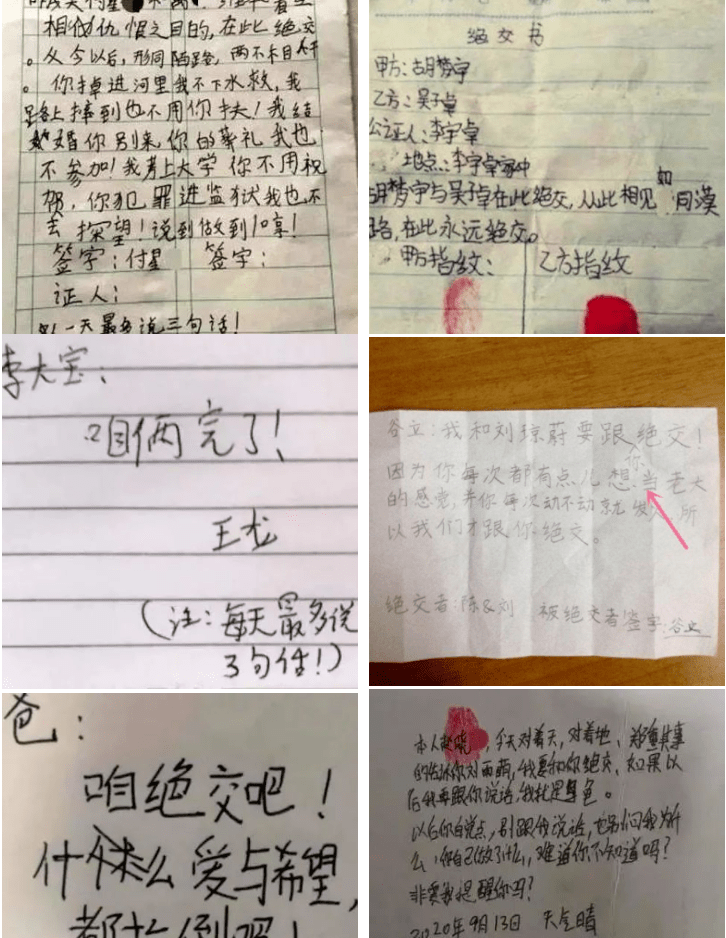 相似仇恨之目的,在此绝交
。从今以后,形同陌路,两不相干
。你掉进河里我不下水救,我
路上摔到也不用你扶!我结
婚你别来你的葬礼我也
不参加!我考上大学你不用祝
贺,你犯罪进监狱我也不
去探望!说到做到10享!
签字:付星 签字:
证人:
以一天最多说三句话!
绝交书
甲方:胡梦宇
乙方:吴子卓
公证人:李宇卓
地点:李宇卓家中
胡梦宇与吴子卓在此绝交,从此相见如同漠
路,在此永远绝交。
甲方指纹: 乙方指纹
李大宝:
咱俩完了!
王龙
(注:每天最多说
3句话!)
谷立:我和刘琼蔚要跟你绝交!
因为你每次都有点儿想当老大
的感觉,并你每次动不动就发 所
以我们才跟你绝交。
绝交者:陈&刘 被绝交者签字:谷立
爸:
咱绝交吧!
什么 爱与希望,
都什么倒吧!
本人赵晓,今天对着天,对着地、郑重其事
的告诉你刘雨萌,我要和你绝交,如果以
后我再跟你说话,我就是 色。
以后你自觉点,别跟我说话,也别问我为什
么,你自己做了什么,难道你不知道吗?
非要我提醒你吗?
2020年9月13日 天气晴